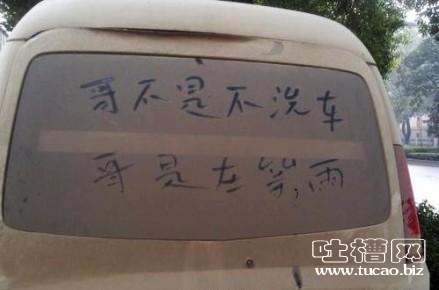 哥不是不洗车
哥是在等雨
吐槽网
www.tucao.biz